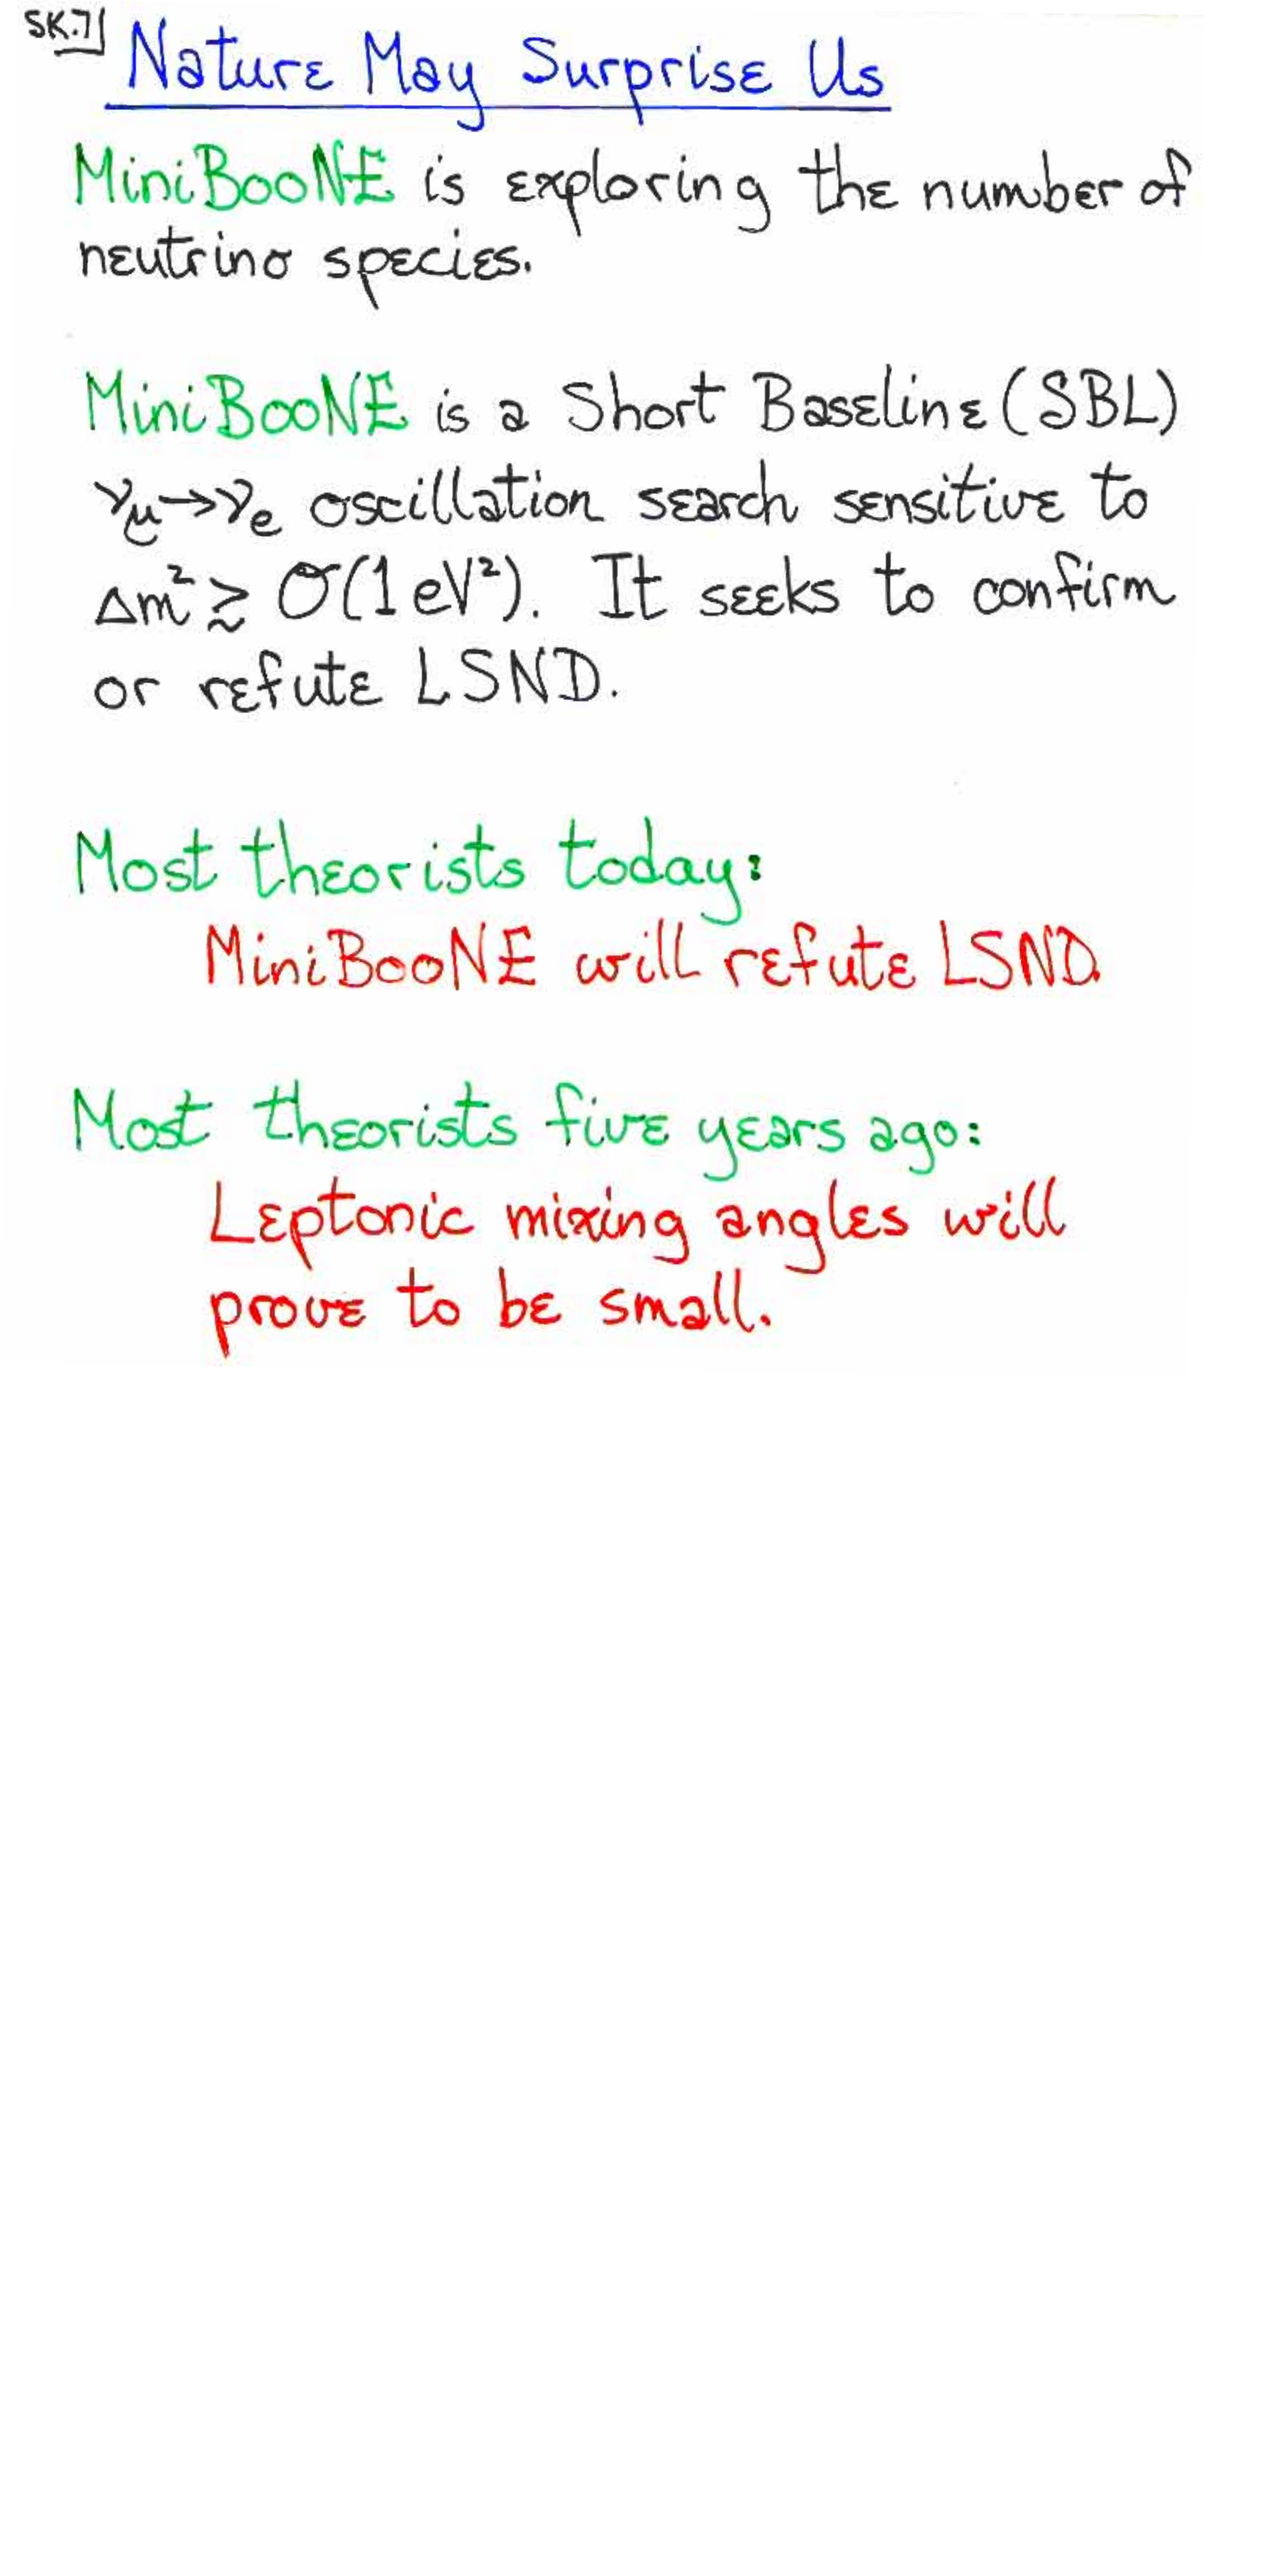 SK.7
Nature May Surprise Us
MiniBooNE is exploring the number of
neutrino species.
MiniBooNE is a Short Baseline (SBL)
νμ→νe oscillation search sensitive to
Δm² ≳ O(1 eV²). It seeks to confirm
or refute LSND.
Most theorists today:
MiniBooNE will refute LSND.
Most theorists five years ago:
Leptonic mixing angles will
prove to be small.